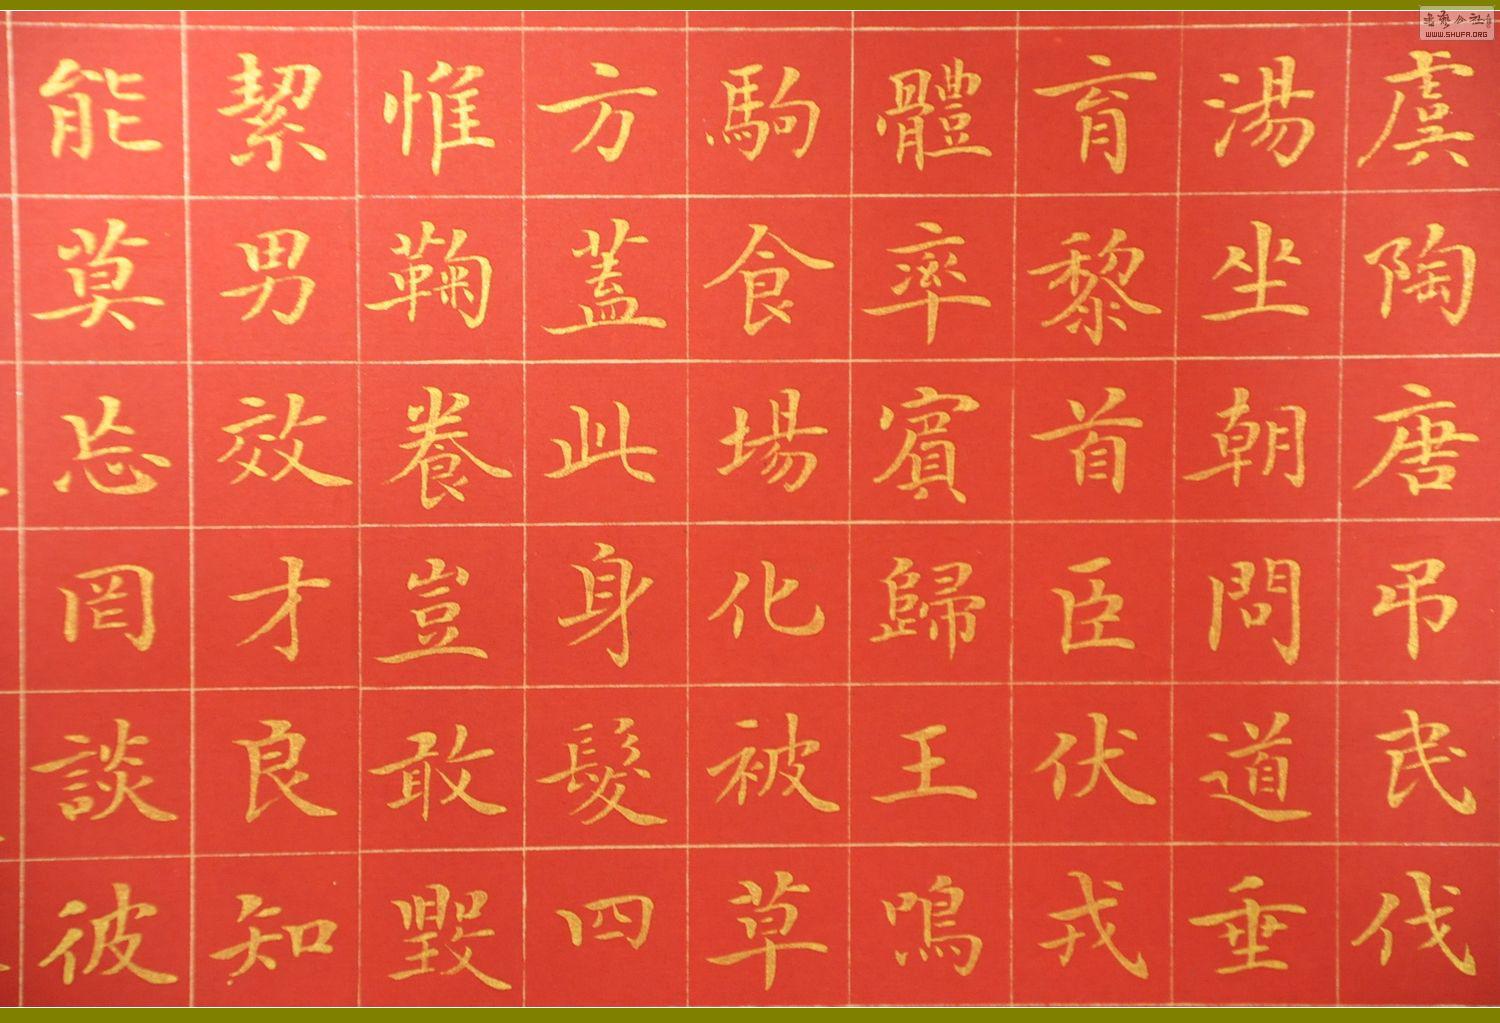 虞陶唐吊民伐
湯坐朝問道垂
育黎首臣伏戎
體率賓歸王鳴
駒食場化被草
方蓋此身髮四
惟鞠養豈敢毀
絜男效才良知
能莫忘罔談彼
WWW.SHUFA.ORG